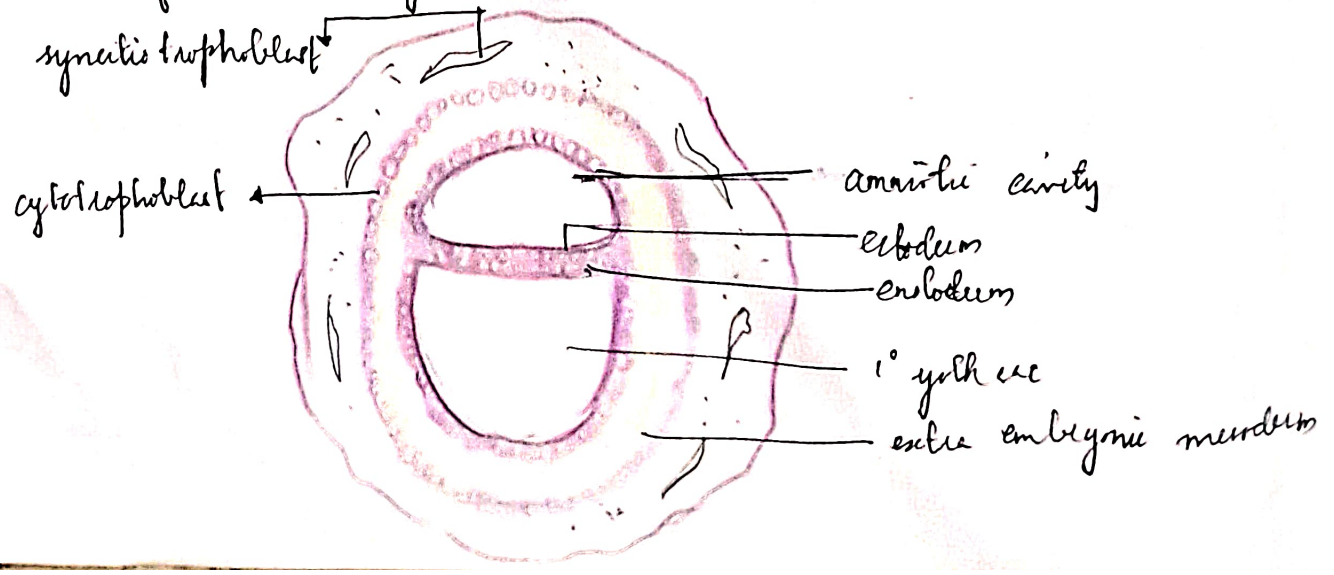 syncitiotrophoblast
cytotrophoblast
amniotic cavity
ectoderm
endoderm
1° yolk sac
extra embryonic mesoderm